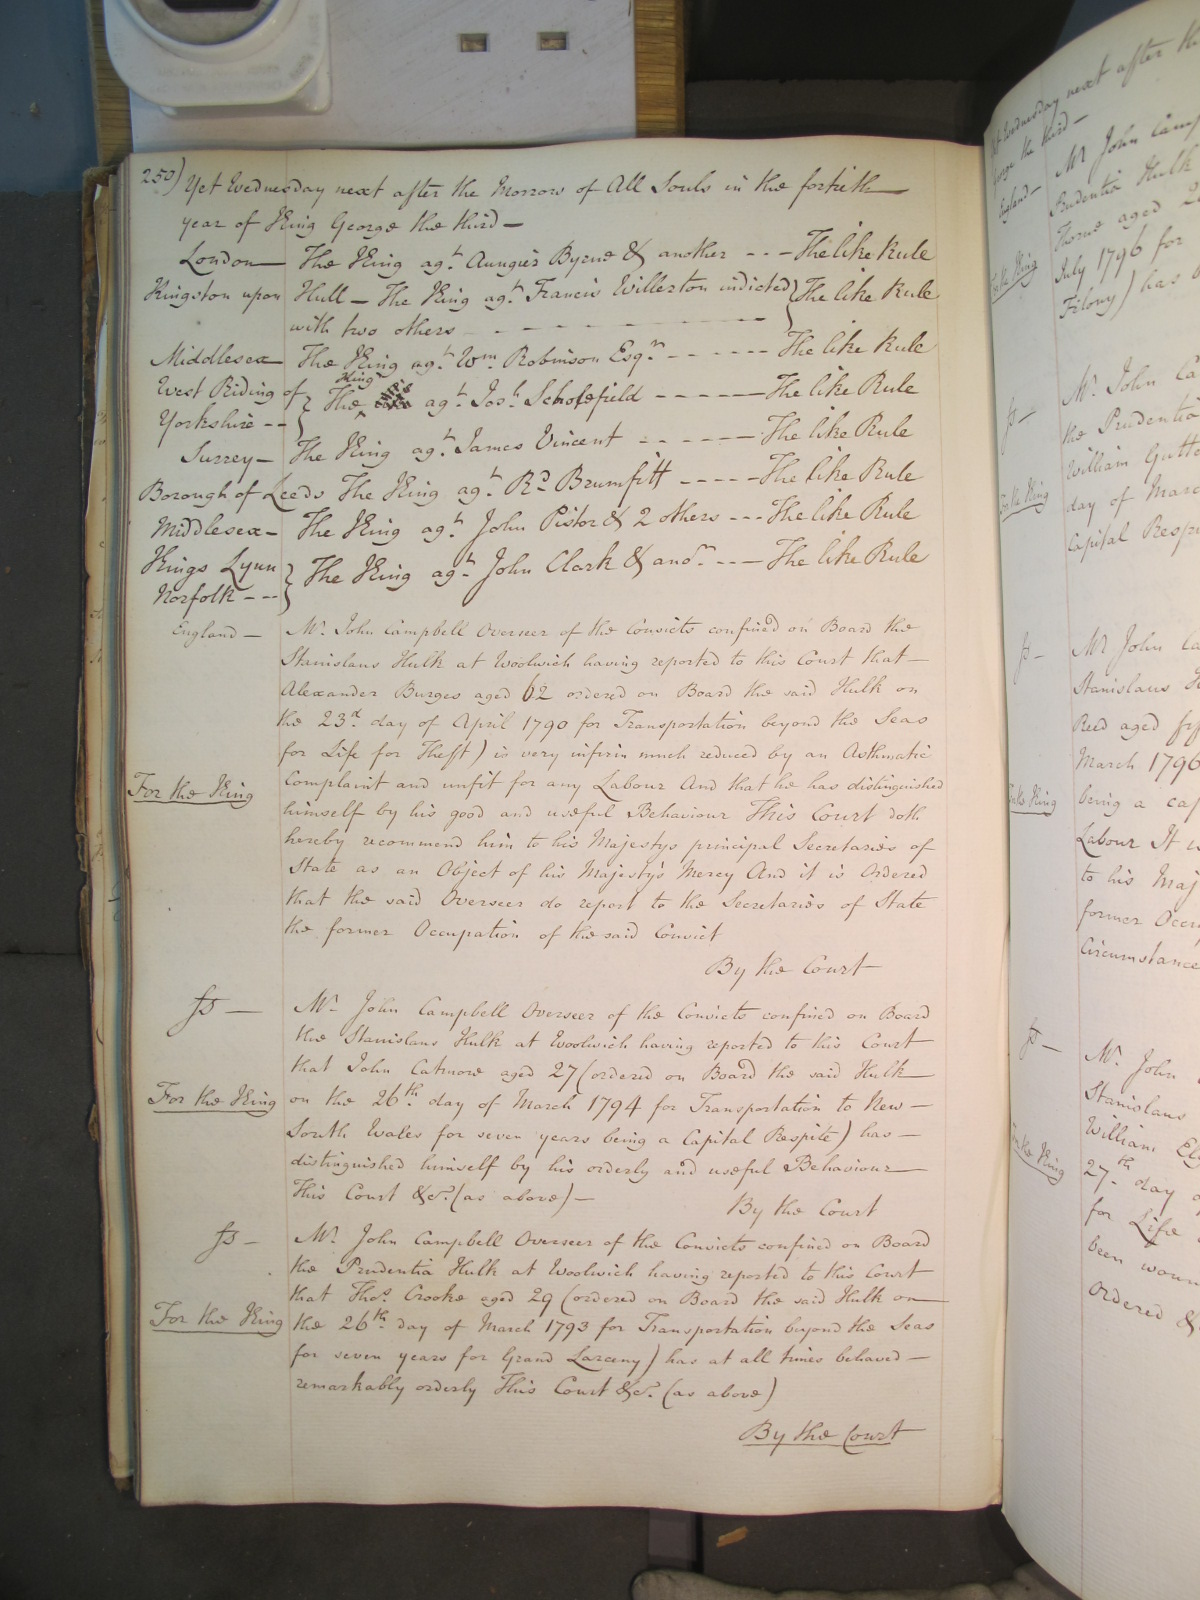 250) Yet Wednesday next after the Morrow of All Souls in the fortieth
year of King George the third —
London — The King agt. Aungier Byrne & another - - - The like Rule
Kingston upon Hull — The King agt. Francis Willerton indicted } The like Rule
with two others - - - - - - - - - -
Middlesex — The King agt. Wm. Robinson Esqr. - - - - - - The like Rule
West Riding of } The King agt. Josh. Scholefield - - - - - — The like Rule
Yorkshire - -
Surrey — The King agt. James Vincent - - - - - — The like Rule
Borough of Leeds The King agt. Rd. Brumfitt - - - - - The like Rule
Middlesex — The King agt. John Pistor & 2 others - - - The like Rule
Kings Lynn } The King agt. John Clark & anor. - - — The like Rule
Norfolk - - -
England — Mr. John Campbell Overseer of the Convicts confined on Board the
Stanislaus Hulk at Woolwich having reported to this Court that —
Alexander Burges aged 62 ordered on Board the said Hulk on
the 23d. day of April 1790 for Transportation beyond the Seas
for Life for Theft) is very infirm much reduced by an Asthmatic
For the King Complaint and unfit for any Labour And that he has distinguished
himself by his good and useful Behaviour This Court doth
hereby recommend him to his Majestys principal Secretaries of
State as an Object of his Majesty's Mercy And it is Ordered
that the said Overseer do report to the Secretaries of State
the former Occupation of the said Convict
By the Court
fs — Mr. John Campbell Overseer of the Convicts confined on Board
the Stanislaus Hulk at Woolwich having reported to this Court
that John Catmore aged 27 (ordered on Board the said Hulk
For the King on the 26th. day of March 1794 for Transportation to New —
South Wales for seven years being a Capital Respite) has —
distinguished himself by his orderly and useful Behaviour
This Court &c. (as above) — By the Court
fs — Mr. John Campbell Overseer of the Convicts confined on Board
the Prudentia Hulk at Woolwich having reported to this Court
that Thos. Crooke aged 29 (ordered on Board the said Hulk on
For the King the 26th. day of March 1793 for Transportation beyond the Seas
for seven years for Grand Larceny) has at all times behaved —
remarkably orderly This Court &c. (as above)
By the Court
Wednesday next after the
George the third —
England — Mr John Camp
Prudentia Hulk
Thorne aged 2
For the King July 1796 for
Felony) has
fs — Mr. John Ca
the Prudentia
William Gutt
For the King day of Marc
Capital Resp
fs — Mr John Ca
Stanislaus H
Reed aged
March 1796
For the King being a cap
Labour It
to his Maj
former Occu
Circumstance
fs — Mr. John
Stanislaus
William
For the King 27th. day
for Life
been woun
Ordered &